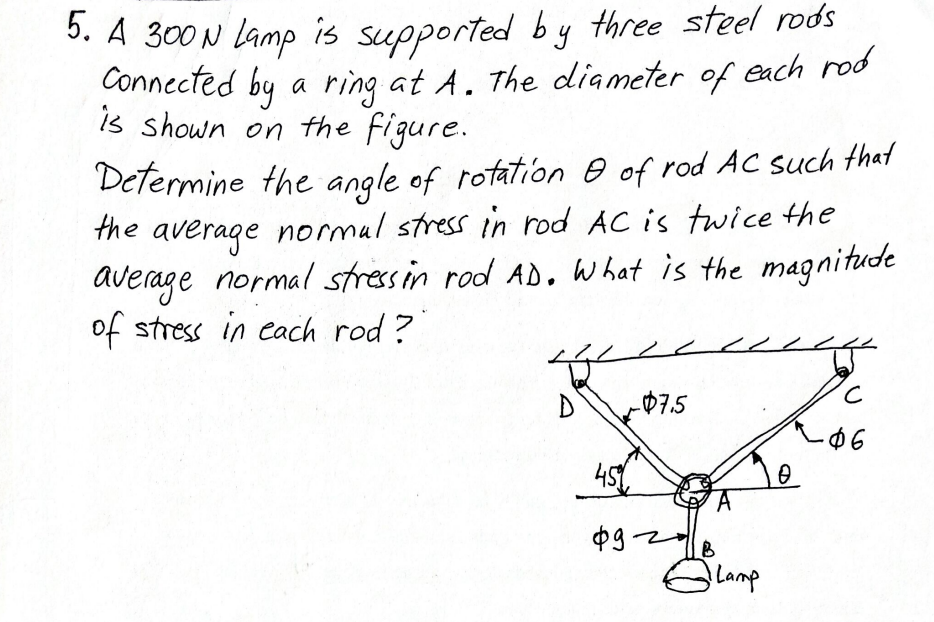 5. A 300 N Lamp is supported by three steel rods
Connected by a ring at A. The diameter of each rod
is shown on the figure.
Determine the angle of rotation θ of rod AC such that
the average normal stress in rod AC is twice the
average normal stress in rod AD. What is the magnitude
of stress in each rod?
D
Φ7.5
C
Φ6
45°
θ
A
Φ9
B
Lamp